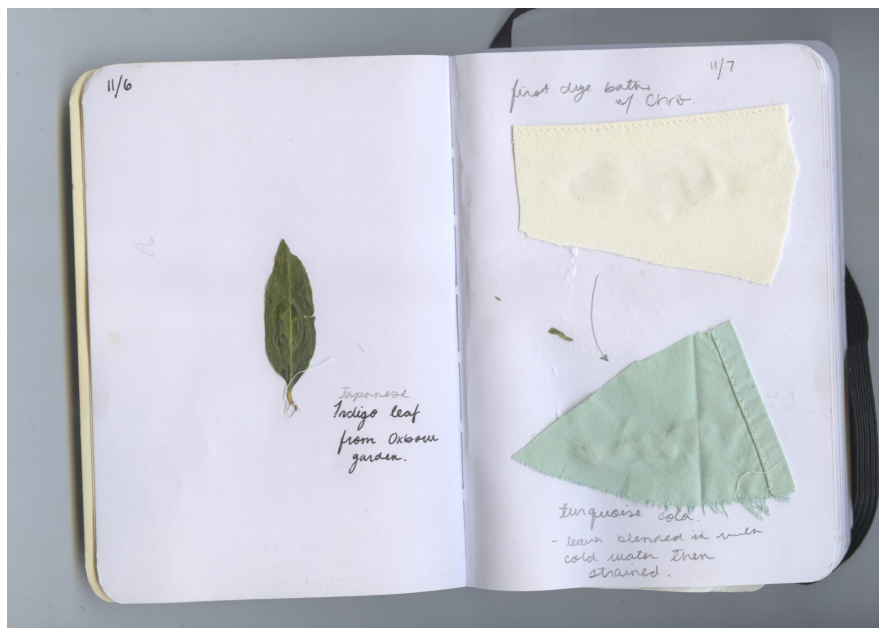 11/6
Japanese
Indigo leaf
from Oxbow
garden.
11/7
first dye bath
w/ Chris.
turquoise cold.
- leaves blended in with
cold water then
strained.